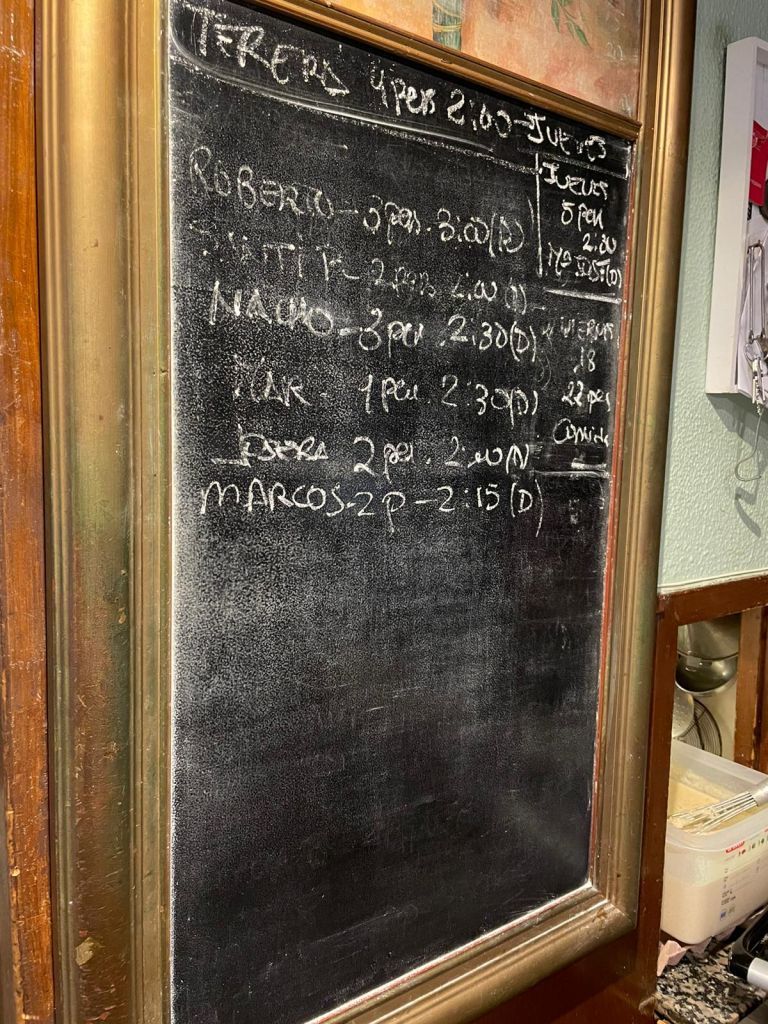 TERERA 4 pers 2:00 - JUEVES
ROBERTO - 3 pers. 3:00 (D)
2 pers 2:00
NACHO - 3 per. 2:30 (D)
MAR 4 per. 2:30 (D)
2 per. 2:00
MARCOS - 2 p - 2:15 (D)
JUEVES
5 per
2:00
Mª JOSE (D)
VIERNES
18
22 pes
Comida